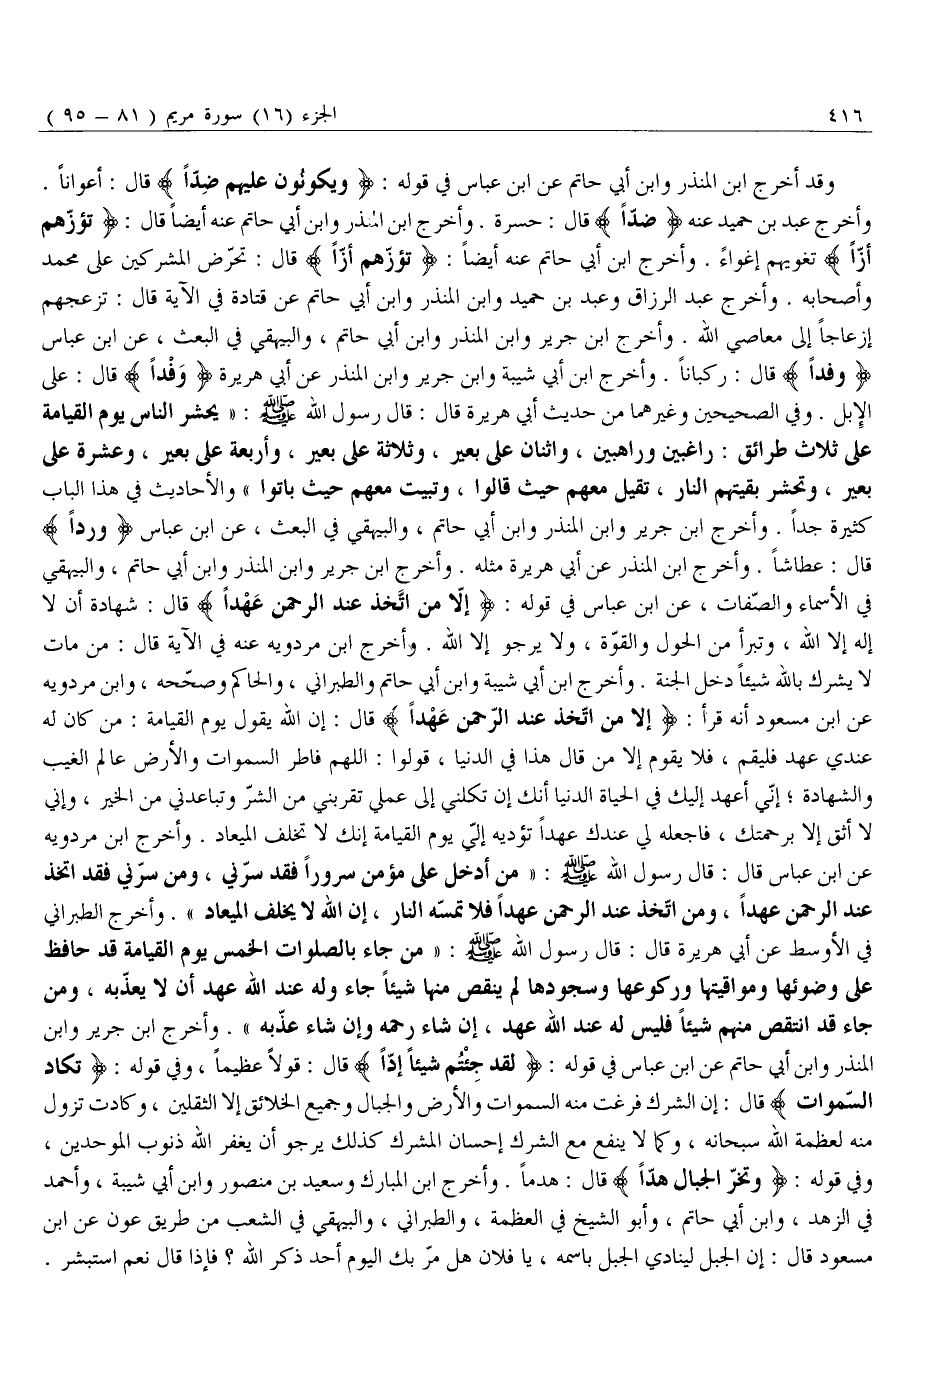 ٤١٦ الجزء (١٦) سورة مريم ( ٨١ – ٩٥ )
وقد أخرج ابن المنذر وابن أبي حاتم عن ابن عباس في قوله : ﴿ ويكونُون عليهم ضِدّاً ﴾ قال : أعواناً .
وأخرج عبد بن حميد عنه ﴿ ضدّاً ﴾ قال : حسرة . وأخرج ابن المنذر وابن أبي حاتم عنه أيضاً قال : ﴿ تؤزّهم
أزّاً ﴾ تغويهم إغواءً . وأخرج ابن أبي حاتم عنه أيضاً : ﴿ تؤزّهم أزّاً ﴾ قال : تحرّض المشركين على محمد
وأصحابه . وأخرج عبد الرزاق وعبد بن حميد وابن المنذر وابن أبي حاتم عن قتادة في الآية قال : تزعجهم
إزعاجاً إلى معاصي الله . وأخرج ابن جرير وابن المنذر وابن أبي حاتم ، والبيهقي في البعث ، عن ابن عباس
﴿ وفداً ﴾ قال : ركباناً . وأخرج ابن أبي شيبة وابن جرير وابن المنذر عن أبي هريرة ﴿ وَفْداً ﴾ قال : على
الإبل . وفي الصحيحين وغيرهما من حديث أبي هريرة قال : قال رسول الله ﷺ : « يحشر الناس يوم القيامة
على ثلاث طرائق : راغبين وراهبين ، واثنان على بعير ، وثلاثة على بعير ، وأربعة على بعير ، وعشرة على
بعير ، وتحشر بقيتهم النار ، تقيل معهم حيث قالوا ، وتبيت معهم حيث باتوا » والأحاديث في هذا الباب
كثيرة جداً . وأخرج ابن جرير وابن المنذر وابن أبي حاتم ، والبيهقي في البعث ، عن ابن عباس ﴿ ورداً ﴾
قال : عطاشاً . وأخرج ابن المنذر عن أبي هريرة مثله . وأخرج ابن جرير وابن المنذر وابن أبي حاتم ، والبيهقي
في الأسماء والصّفات ، عن ابن عباس في قوله : ﴿ إلّا من اتَّخذ عند الرحمن عَهْداً ﴾ قال : شهادة أن لا
إله إلا الله ، وتبرأ من الحول والقوّة ، ولا يرجو إلا الله . وأخرج ابن مردويه عنه في الآية قال : من مات
لا يشرك بالله شيئاً دخل الجنة . وأخرج ابن أبي شيبة وابن أبي حاتم والطبراني ، والحاكم وصحّحه ، وابن مردويه
عن ابن مسعود أنه قرأ : ﴿ إلا من اتّخذ عند الرّحمن عَهْداً ﴾ قال : إن الله يقول يوم القيامة : من كان له
عندي عهد فليقم ، فلا يقوم إلا من قال هذا في الدنيا ، قولوا : اللهم فاطر السموات والأرض عالم الغيب
والشهادة ؛ إنّي أعهد إليك في الحياة الدنيا أنك إن تكلني إلى عملي تقربني من الشرّ وتباعدني من الخير ، وإني
لا أثق إلا برحمتك ، فاجعله لي عندك عهداً تؤديه إليّ يوم القيامة إنك لا تخلف الميعاد . وأخرج ابن مردويه
عن ابن عباس قال : قال رسول الله ﷺ : « من أدخل على مؤمن سروراً فقد سرّني ، ومن سرّني فقد اتخذ
عند الرحمن عهداً ، ومن اتّخذ عند الرحمن عهداً فلا تمسّه النار ، إن الله لا يخلف الميعاد » . وأخرج الطبراني
في الأوسط عن أبي هريرة قال : قال رسول الله ﷺ : « من جاء بالصلوات الخمس يوم القيامة قد حافظ
على وضوئها ومواقيتها وركوعها وسجودها لم ينقص منها شيئاً جاء وله عند الله عهد أن لا يعذّبه ، ومن
جاء قد انتقص منهم شيئاً فليس له عند الله عهد ، إن شاء رحمه وإن شاء عذّبه » . وأخرج ابن جرير وابن
المنذر وابن أبي حاتم عن ابن عباس في قوله : ﴿ لقد جِئْتُم شيئاً إدّاً ﴾ قال : قولاً عظيماً ، وفي قوله : ﴿ تكاد
السّموات ﴾ قال : إن الشرك فرغت منه السموات والأرض والجبال وجميع الخلائق إلا الثقلين ، وكادت تزول
منه لعظمة الله سبحانه ، وكما لا ينفع مع الشرك إحسان المشرك كذلك يرجو أن يغفر الله ذنوب الموحدين ،
وفي قوله : ﴿ وتخرّ الجبال هدّاً ﴾ قال : هدماً . وأخرج ابن المبارك وسعيد بن منصور وابن أبي شيبة ، وأحمد
في الزهد ، وابن أبي حاتم ، وأبو الشيخ في العظمة ، والطبراني ، والبيهقي في الشعب من طريق عون عن ابن
مسعود قال : إن الجبل لينادي الجبل باسمه ، يا فلان هل مرّ بك اليوم أحد ذكر الله ؟ فإذا قال نعم استبشر .